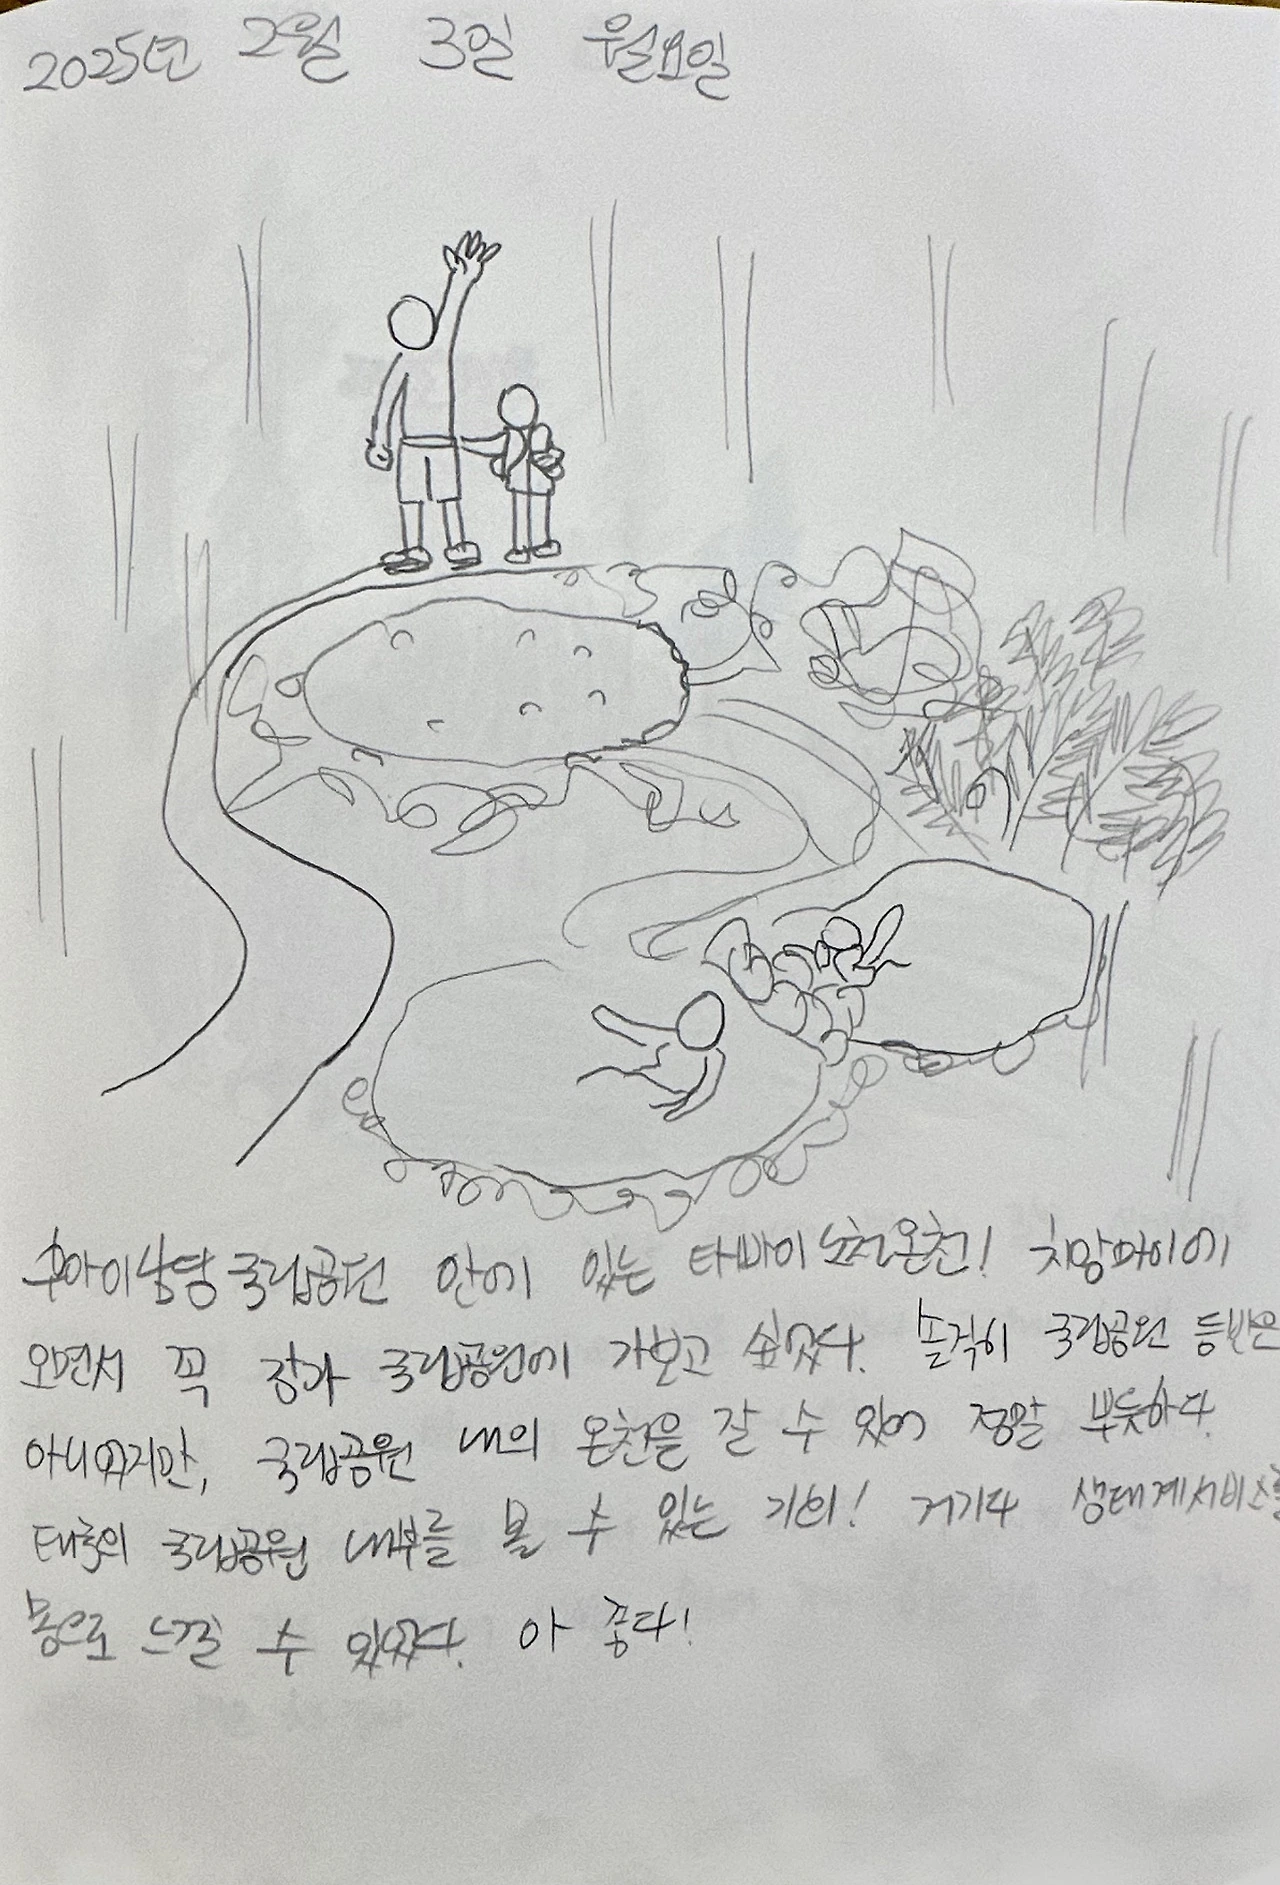 2025년 2월 3일 월요일
후아이남당 국립공원 안에 있는 타바이 노천온천! 치앙마이에
오면서 꼭 장과 국립공원에 가보고 싶었다. 솔직히 국립공원 등반은
아니였지만, 국립공원 내의 온천을 갈 수 있어 정말 뿌듯하다.
태국의 국립공원 내부를 볼 수 있는 기회! 거기다 생태계서비스를
몸으로 느낄 수 있었다. 아 좋다!